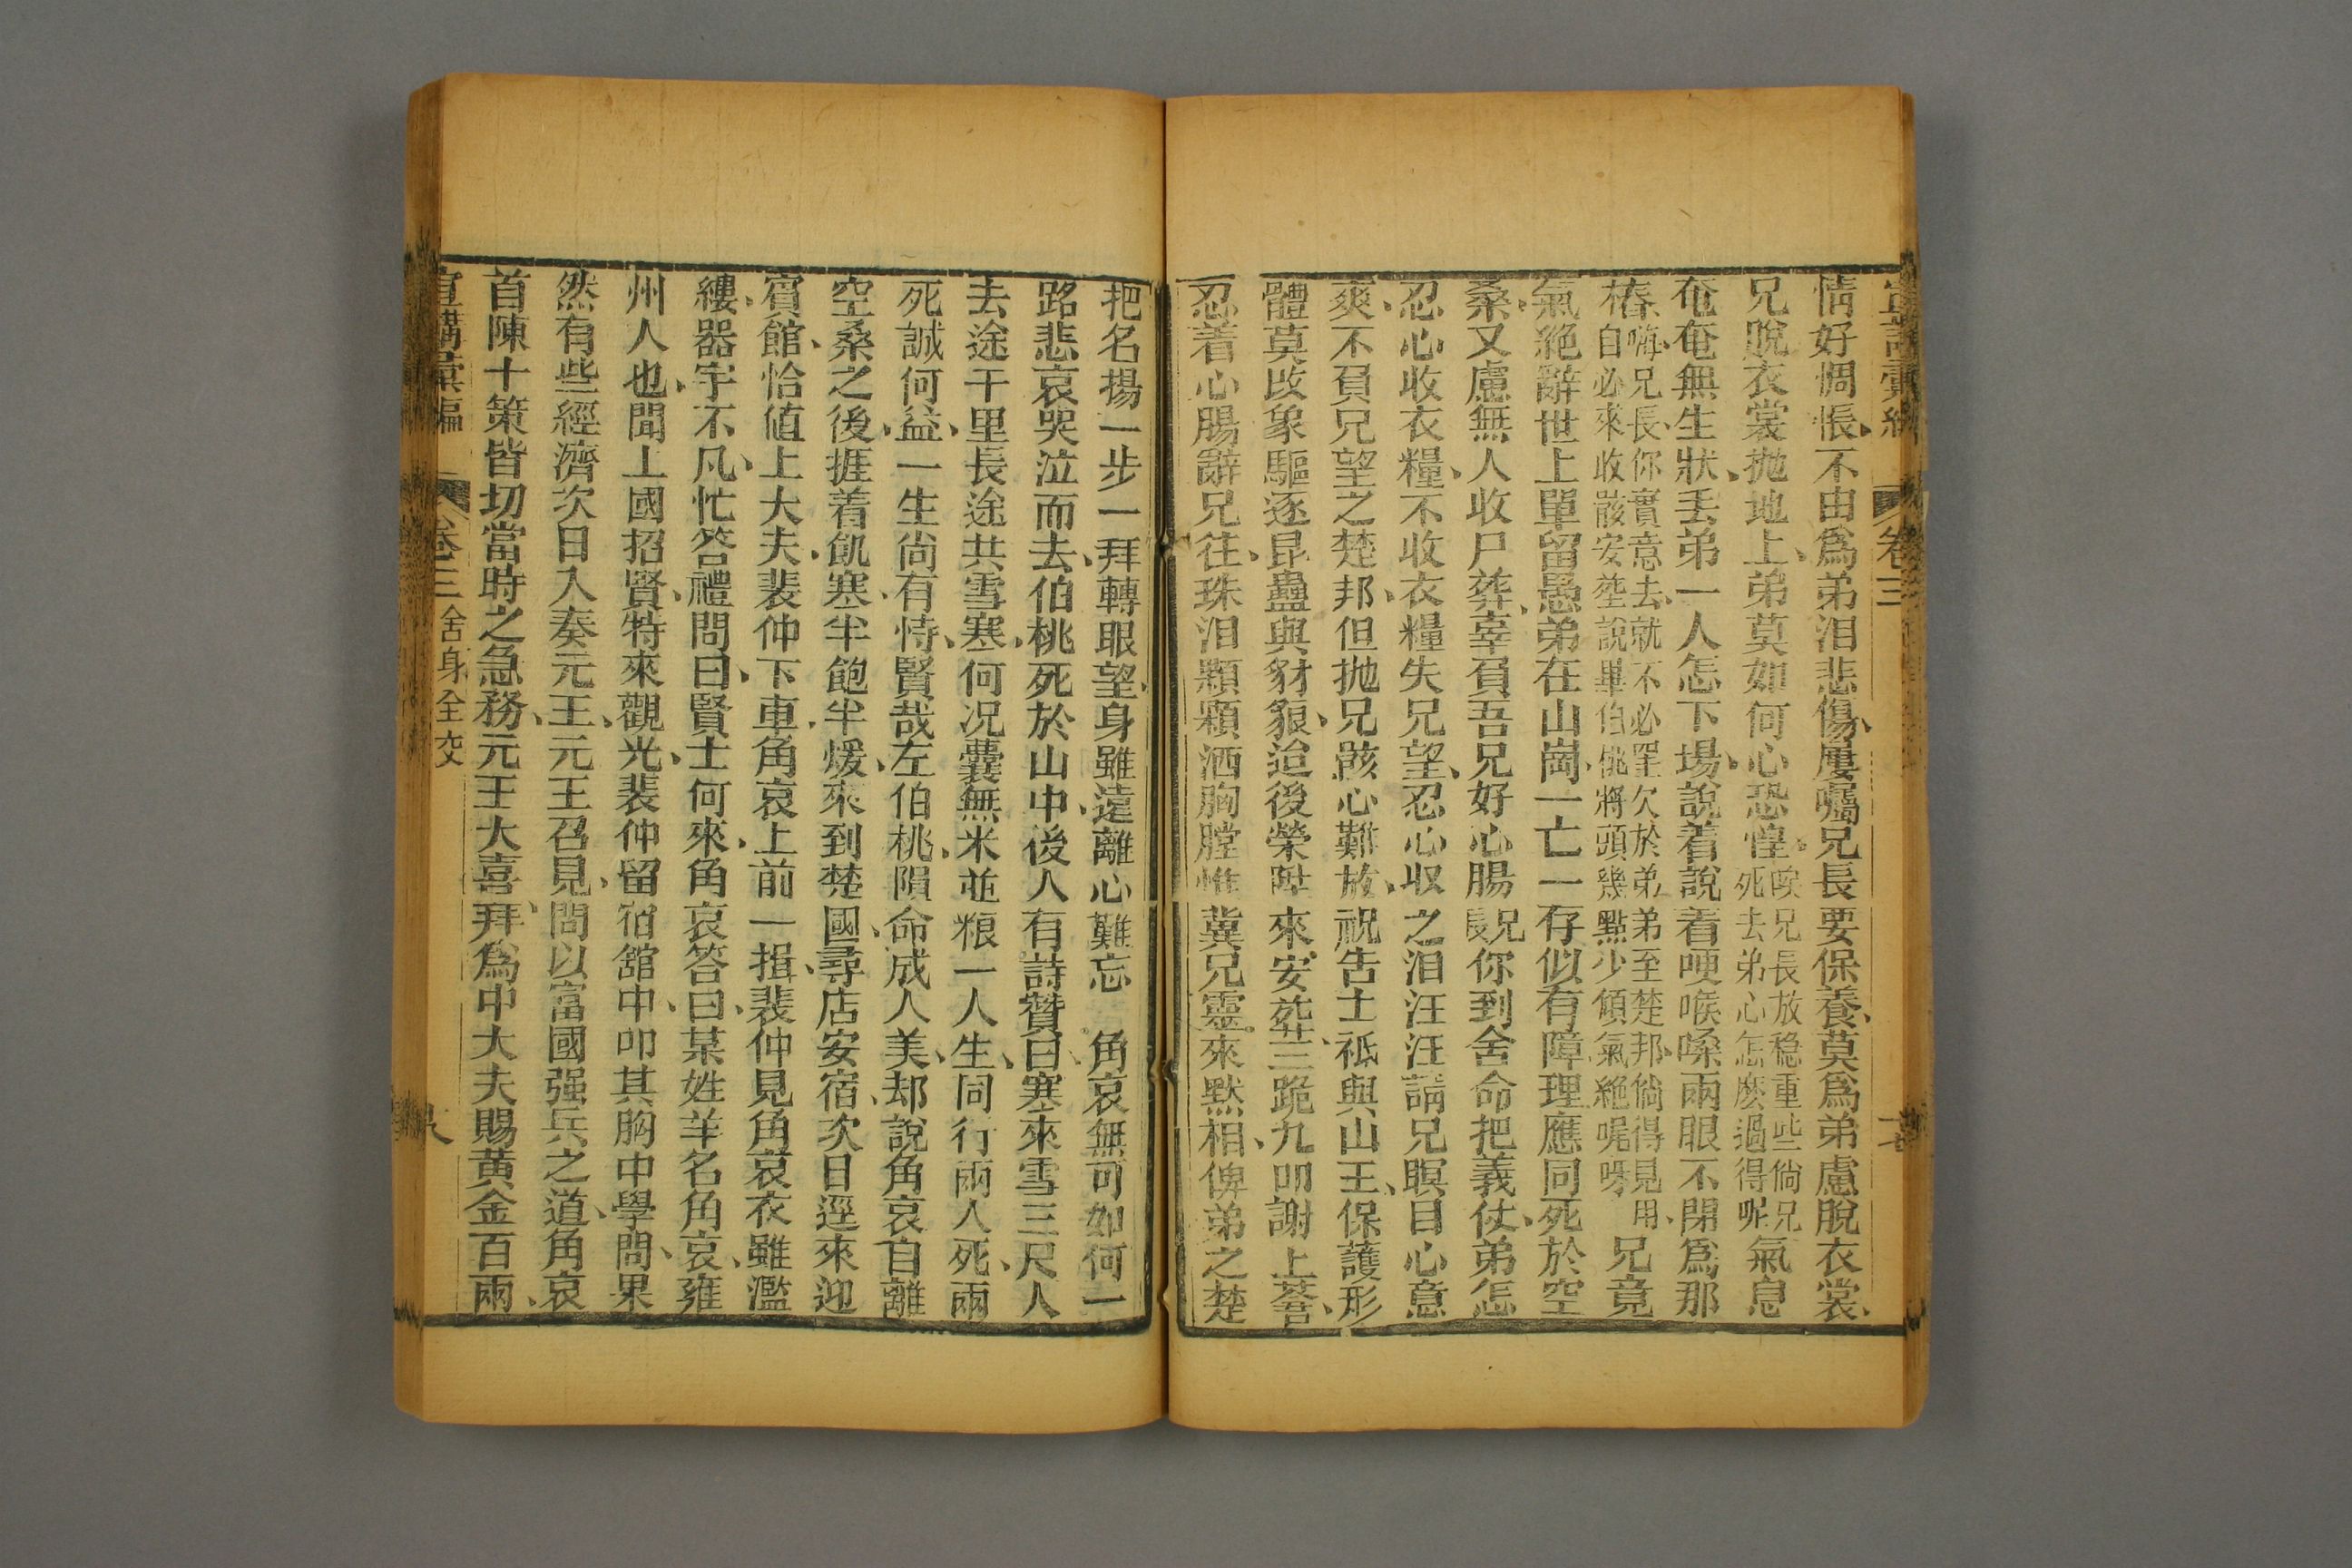 宣講彙編 卷三
情好惆悵不由爲弟泪悲傷屢囑兄長要保養莫爲弟慮脫衣裳
兄脫衣裳抛地上弟莫如何心恐惶唉兄長放稳重些倘兄死去弟心怎麽過得呢氣息
奄奄無生狀丢弟一人怎下場說着說着哽喉嗓兩眼不閉爲那
樁嗨兄長你實意去就不必罣欠於弟弟至楚邦倘得見用自必來收骸安塟說畢伯桃將頭幾點少傾氣絕呢呀兄竟
氣絕辭世上單留愚弟在山崗一亡一存似有障理應同死於空
桑又慮無人收尸葬辜負吾兄好心腸兄長你到舍命把義仗弟怎
忍心收衣糧不收衣糧失兄望忍心収之泪汪汪請兄瞑目心意
爽不負兄望之楚邦但抛兄骸心難放祝告土祇與山王保護形
體莫改象驅逐昆蟲與豺狼迨後榮陞來安葬三跪九叩謝上蒼
忍着心腸辭兄往珠泪顆顆洒胸膛惟冀兄靈來默相俾弟之楚
把名揚一步一拜轉眼望身雖遠離心難忘 角哀無可如何一
路悲哀哭泣而去伯桃死於山中後人有詩贊曰寒來雪三尺人
去途干里長途共雪寒何况囊無米並粮一人生同行兩人死兩
死誠何益一生尚有恃賢哉左伯桃隕命成人美却說角哀自離
空桑之後捱着飢寒半飽半煖來到楚國尋店安宿次日逕來迎
賓館恰值上大夫裴仲下車角哀上前一揖裴仲見角哀衣雖濫
縷器宇不凡忙答禮問曰賢士何來角哀答曰某姓羊名角哀雍
州人也聞上國招賢特來觀光裴仲留宿舘中叩其胸中學問果
然有些經濟次日入奏元王元王召見問以富國强兵之道角哀
首陳十策皆切當時之急務元王大喜拜爲中大夫賜黃金百兩
宣講彙編 卷三 舍身全交